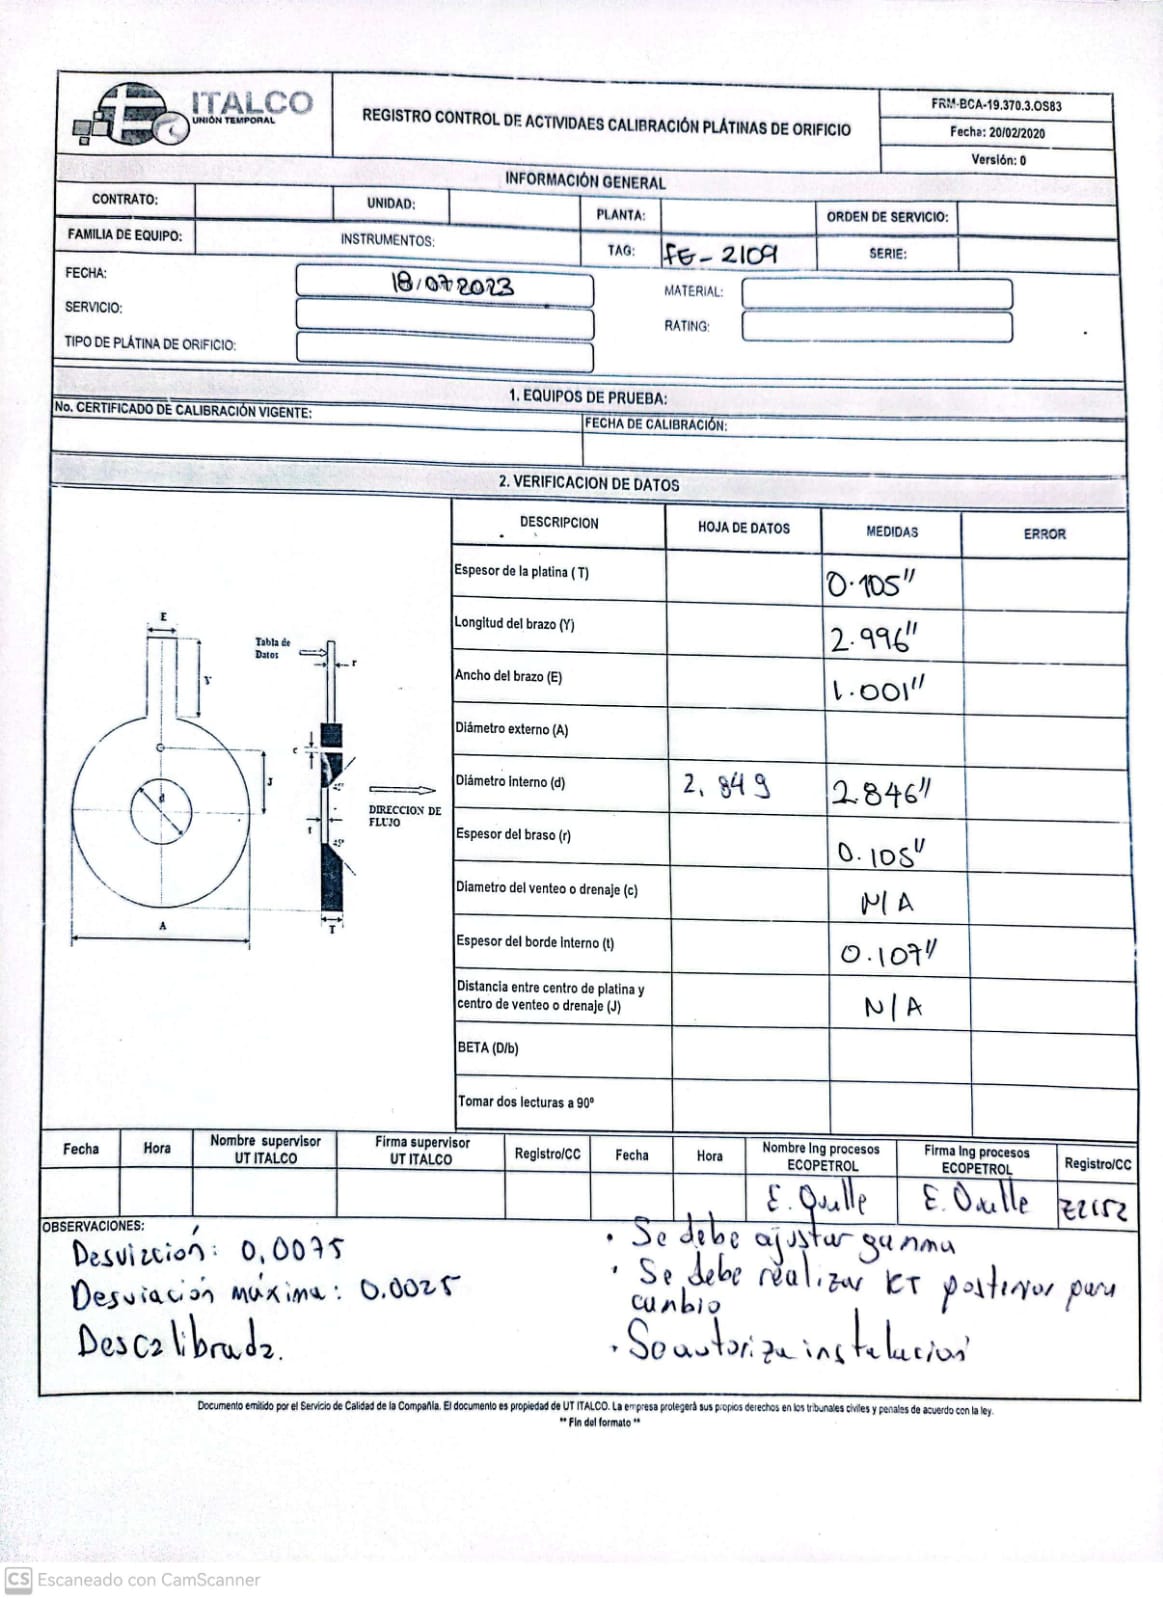 ITALCO
UNIÓN TEMPORAL
REGISTRO CONTROL DE ACTIVIDAES CALIBRACIÓN PLÁTINAS DE ORIFICIO
FRM-BCA-19.370.3.OS83
Fecha: 20/02/2020
Versión: 0
INFORMACIÓN GENERAL
CONTRATO: UNIDAD: PLANTA: ORDEN DE SERVICIO:
FAMILIA DE EQUIPO: INSTRUMENTOS: TAG: FE-2109 SERIE:
FECHA: 18/07 2023 MATERIAL:
SERVICIO: RATING:
TIPO DE PLÁTINA DE ORIFICIO:
1. EQUIPOS DE PRUEBA:
No. CERTIFICADO DE CALIBRACIÓN VIGENTE: FECHA DE CALIBRACIÓN:
2. VERIFICACION DE DATOS
DESCRIPCION HOJA DE DATOS MEDIDAS ERROR
Espesor de la platina (T) 0.105"
Longitud del brazo (Y) 2.996"
Ancho del brazo (E) 1.001"
Diámetro externo (A)
Diámetro interno (d) 2,849 2.846"
Espesor del braso (r) 0.105"
Diametro del venteo o drenaje (c) N/A
Espesor del borde Interno (t) 0.107"
Distancia entre centro de platina y
centro de venteo o drenaje (J) N/A
BETA (D/b)
Tomar dos lecturas a 90º
E
Tabla de
Datos
r
Y
c
J
d
45º
DIRECCION DE
FLUJO
t
45º
A
T
Fecha Hora Nombre supervisor UT ITALCO Firma supervisor UT ITALCO Registro/CC Fecha Hora Nombre Ing procesos ECOPETROL Firma Ing procesos ECOPETROL Registro/CC
E. Ovalle E. Ovalle
OBSERVACIONES:
Desviación: 0,0075
Desviación máxima: 0.0025
Descalibrada.
• Se debe ajustar gamma
• Se debe realizar KT posterior para
cambio
• Se autoriza instalación
Documento emitido por el Servicio de Calidad de la Compañía. El documento es propiedad de UT ITALCO. La empresa protegerá sus propios derechos en los tribunales civiles y penales de acuerdo con la ley.
** Fin del formato **
CS Escaneado con CamScanner